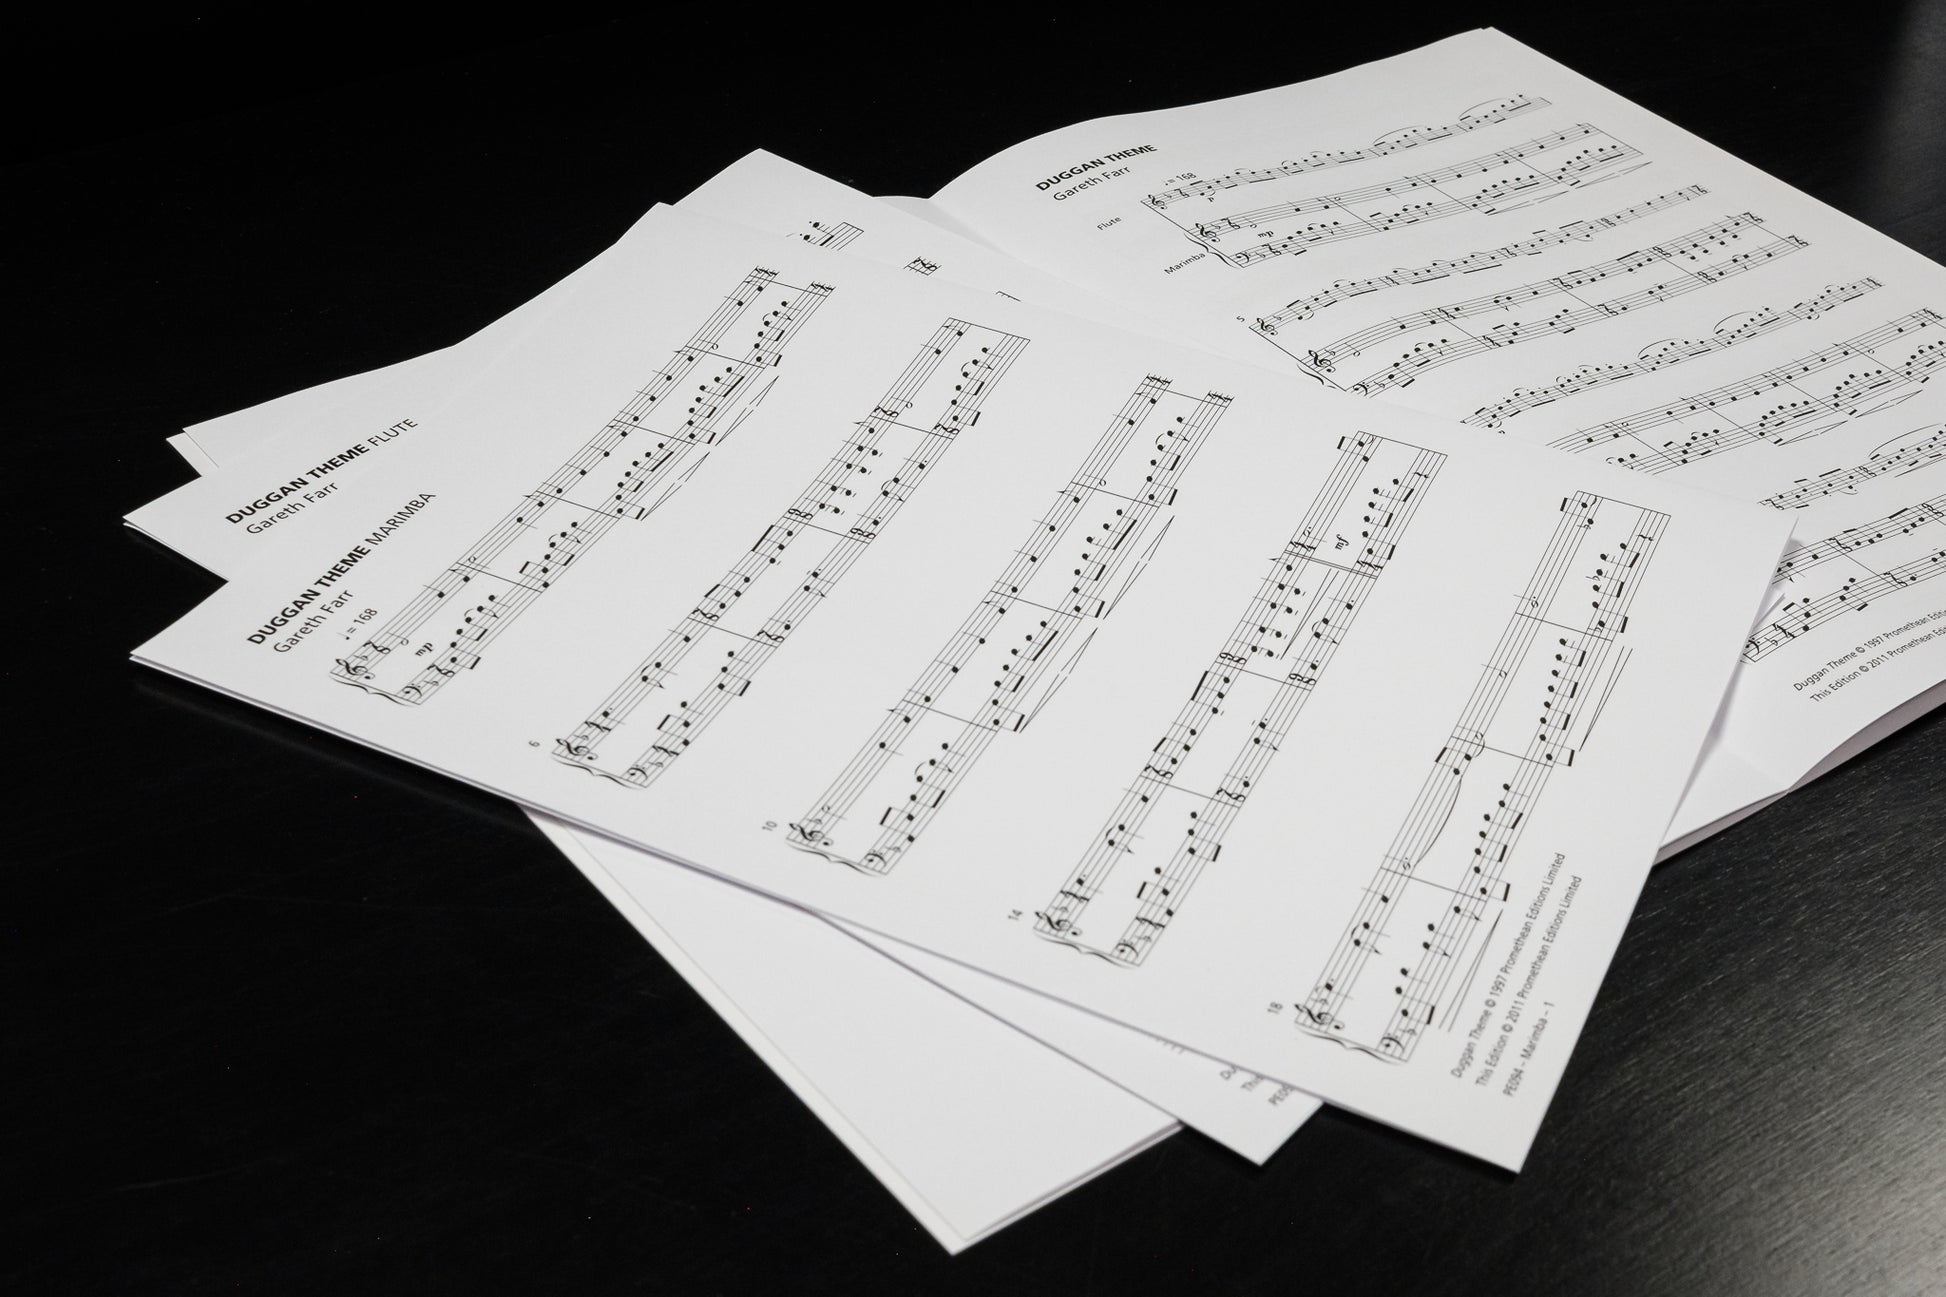 DUGGAN THEME
Gareth Farr
♩ = 168
Flute
p
Marimba
mp
5
Duggan Theme © 1997 Promethean
This Edition © 2011 Promethean
DUGGAN THEME FLUTE
Gareth Farr
DUGGAN THEME MARIMBA
Gareth Farr
♩ = 168
mp
6
10
14
mf
18
Duggan Theme © 1997 Promethean Editions Limited
This Edition © 2011 Promethean Editions Limited
PE094 – Marimba – 1